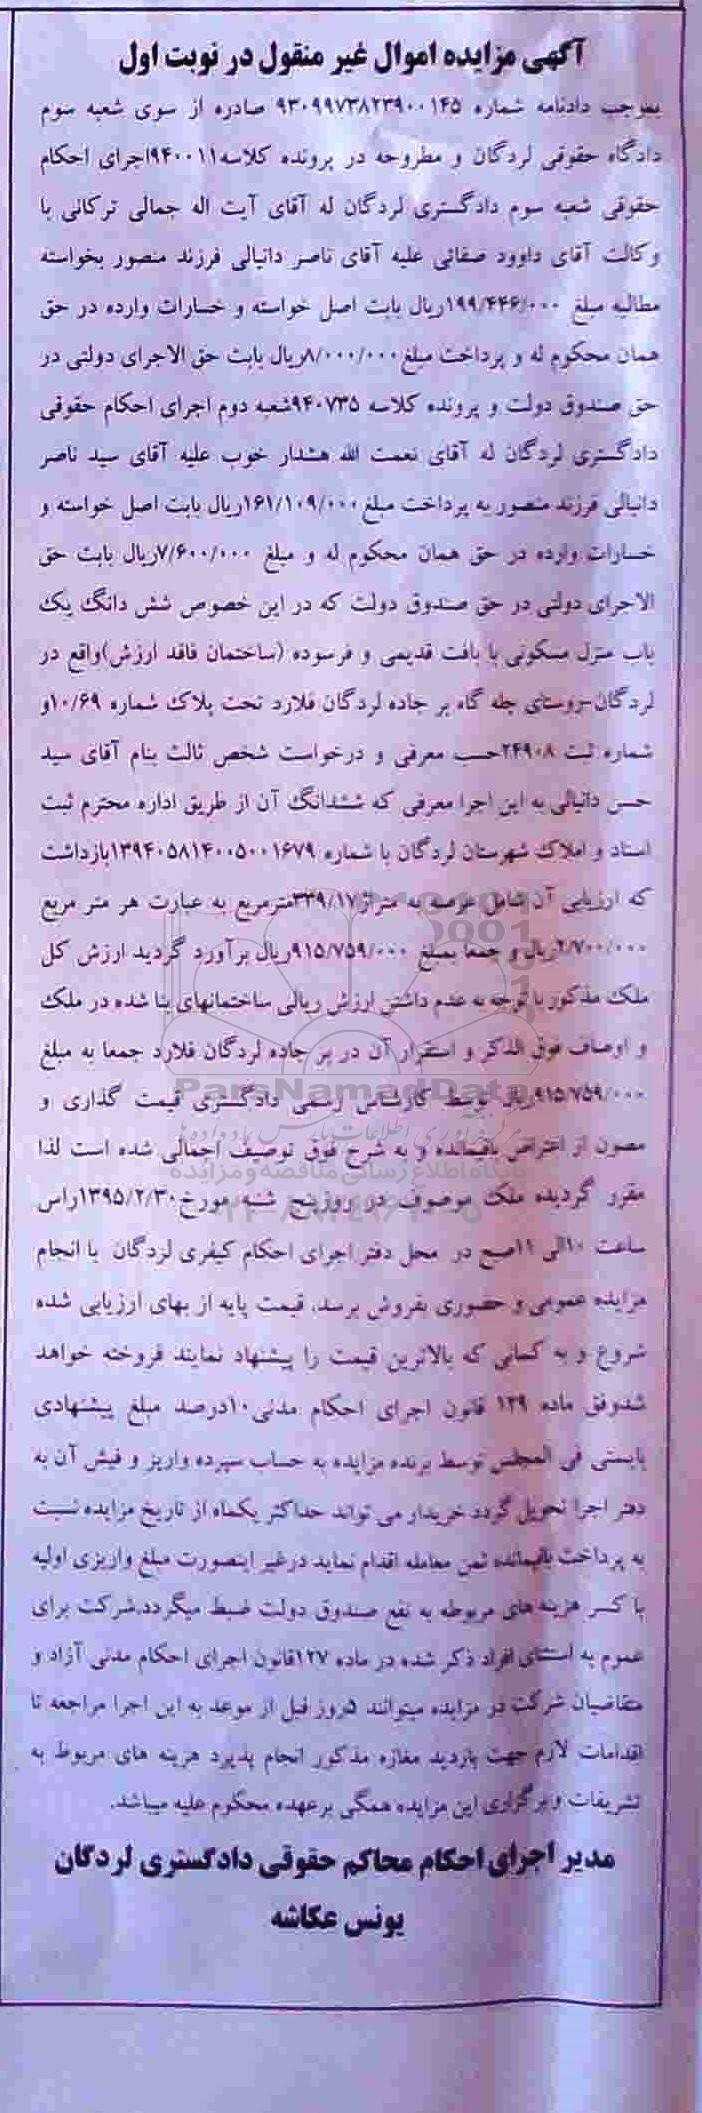 آگهی مزایده اموال غیر منقول در نوبت اول
بموجب دادنامه شماره ۹۳۰۹۹۷۳۸۲۳۹۰۰۱۴۵ صادره از سوی شعبه سوم
دادگاه حقوقی لردگان و مطروحه در پرونده کلاسه۹۴۰۰۱۱اجرای احکام
حقوقی شعبه سوم دادگستری لردگان له آقای آیت اله جمالی ترکانی با
وکالت آقای داوود صفائی علیه آقای ناصر دانیالی فرزند منصور بخواسته
مطالبه مبلغ ۱۹۹/۴۴۶/۰۰۰ریال بابت اصل خواسته و خسارات وارده در حق
همان محکوم له و پرداخت مبلغ۸/۰۰۰/۰۰۰ریال بابت حق الاجرای دولتی در
حق صندوق دولت و پرونده کلاسه ۹۴۰۷۳۵شعبه دوم اجرای احکام حقوقی
دادگستری لردگان له آقای نعمت الله هشدار خوب علیه آقای سید ناصر
دانیالی فرزند منصور به پرداخت مبلغ۱۶۱/۱۰۹/۰۰۰ریال بابت اصل خواسته و
خسارات وارده در حق همان محکوم له و مبلغ ۷/۶۰۰/۰۰۰ریال بابت حق
الاجرای دولتی در حق صندوق دولت که در این خصوص شش دانگ یک
باب منزل مسکونی با بافت قدیمی و فرسوده (ساختمان فاقد ارزش)واقع در
لردگان-روستای چله گاه بر جاده لردگان فلارد تحت پلاک شماره ۱۰/۶۹و
شماره ثبت ۲۴۹۰۸حسب معرفی و درخواست شخص ثالث بنام آقای سید
حسن دانیالی به این اجرا معرفی که ششدانگ آن از طریق اداره محترم ثبت
اسناد و املاک شهرستان لردگان با شماره ۱۳۹۴۰۵۸۱۴۰۰۵۰۰۱۶۷۹بازداشت
که ارزیابی آن شامل عرصه به متراژ۳۳۹/۱۷مترمربع به عبارت هر متر مربع
۲/۷۰۰/۰۰۰ریال و جمعا بمبلغ ۹۱۵/۷۵۹/۰۰۰ریال برآورد گردید ارزش کل
ملک مذکور با توجه به عدم داشتن ارزش ریالی ساختمانهای بنا شده در ملک
و اوصاف فوق الذکر و استقرار آن در بر جاده لردگان فلارد جمعا به مبلغ
۹۱۵/۷۵۹/۰۰۰ریال توسط کارشناس رسمی دادگستری قیمت گذاری و
مصون از اعتراض باقیمانده و به شرح فوق توصیف اجمالی شده است لذا
مقرر گردیده ملک موصوف در روزپنج شنبه مورخ۱۳۹۵/۲/۳۰راس
ساعت ۱۰الی ۱۱صبح در محل دفتر اجرای احکام کیفری لردگان با انجام
مزایده عمومی و حضوری بفروش برسد. قیمت پایه از بهای ارزیابی شده
شروع و به کسانی که بالاترین قیمت را پیشنهاد نمایند فروخته خواهد
شدوفق ماده ۱۲۹ قانون اجرای احکام مدنی۱۰درصد مبلغ پیشنهادی
بایستی فی المجلس توسط برنده مزایده به حساب سپرده واریز و فیش آن به
دفتر اجرا تحویل گردد خریدار می تواند حداکثر یکماه از تاریخ مزایده نسبت
به پرداخت باقیمانده ثمن معامله اقدام نماید درغیر اینصورت مبلغ واریزی اولیه
با کسر هزینه های مربوطه به نفع صندوق دولت ضبط میگردد.شرکت برای
عموم به استثنای افراد ذکر شده در ماده ۱۲۷قانون اجرای احکام مدنی آزاد و
متقاضیان شرکت در مزایده میتوانند ۵روز قبل از موعد به این اجرا مراجعه تا
اقدامات لازم جهت بازدید مغازه مذکور انجام پذیرد هزینه های مربوط به
تشریفات و برگزاری این مزایده همگی برعهده محکوم علیه میباشد.
مدیر اجرای احکام محاکم حقوقی دادگستری لردگان
یونس عکاشه
ParsNamadData
پایگاه اطلاع رسانی مناقصه و مزایده